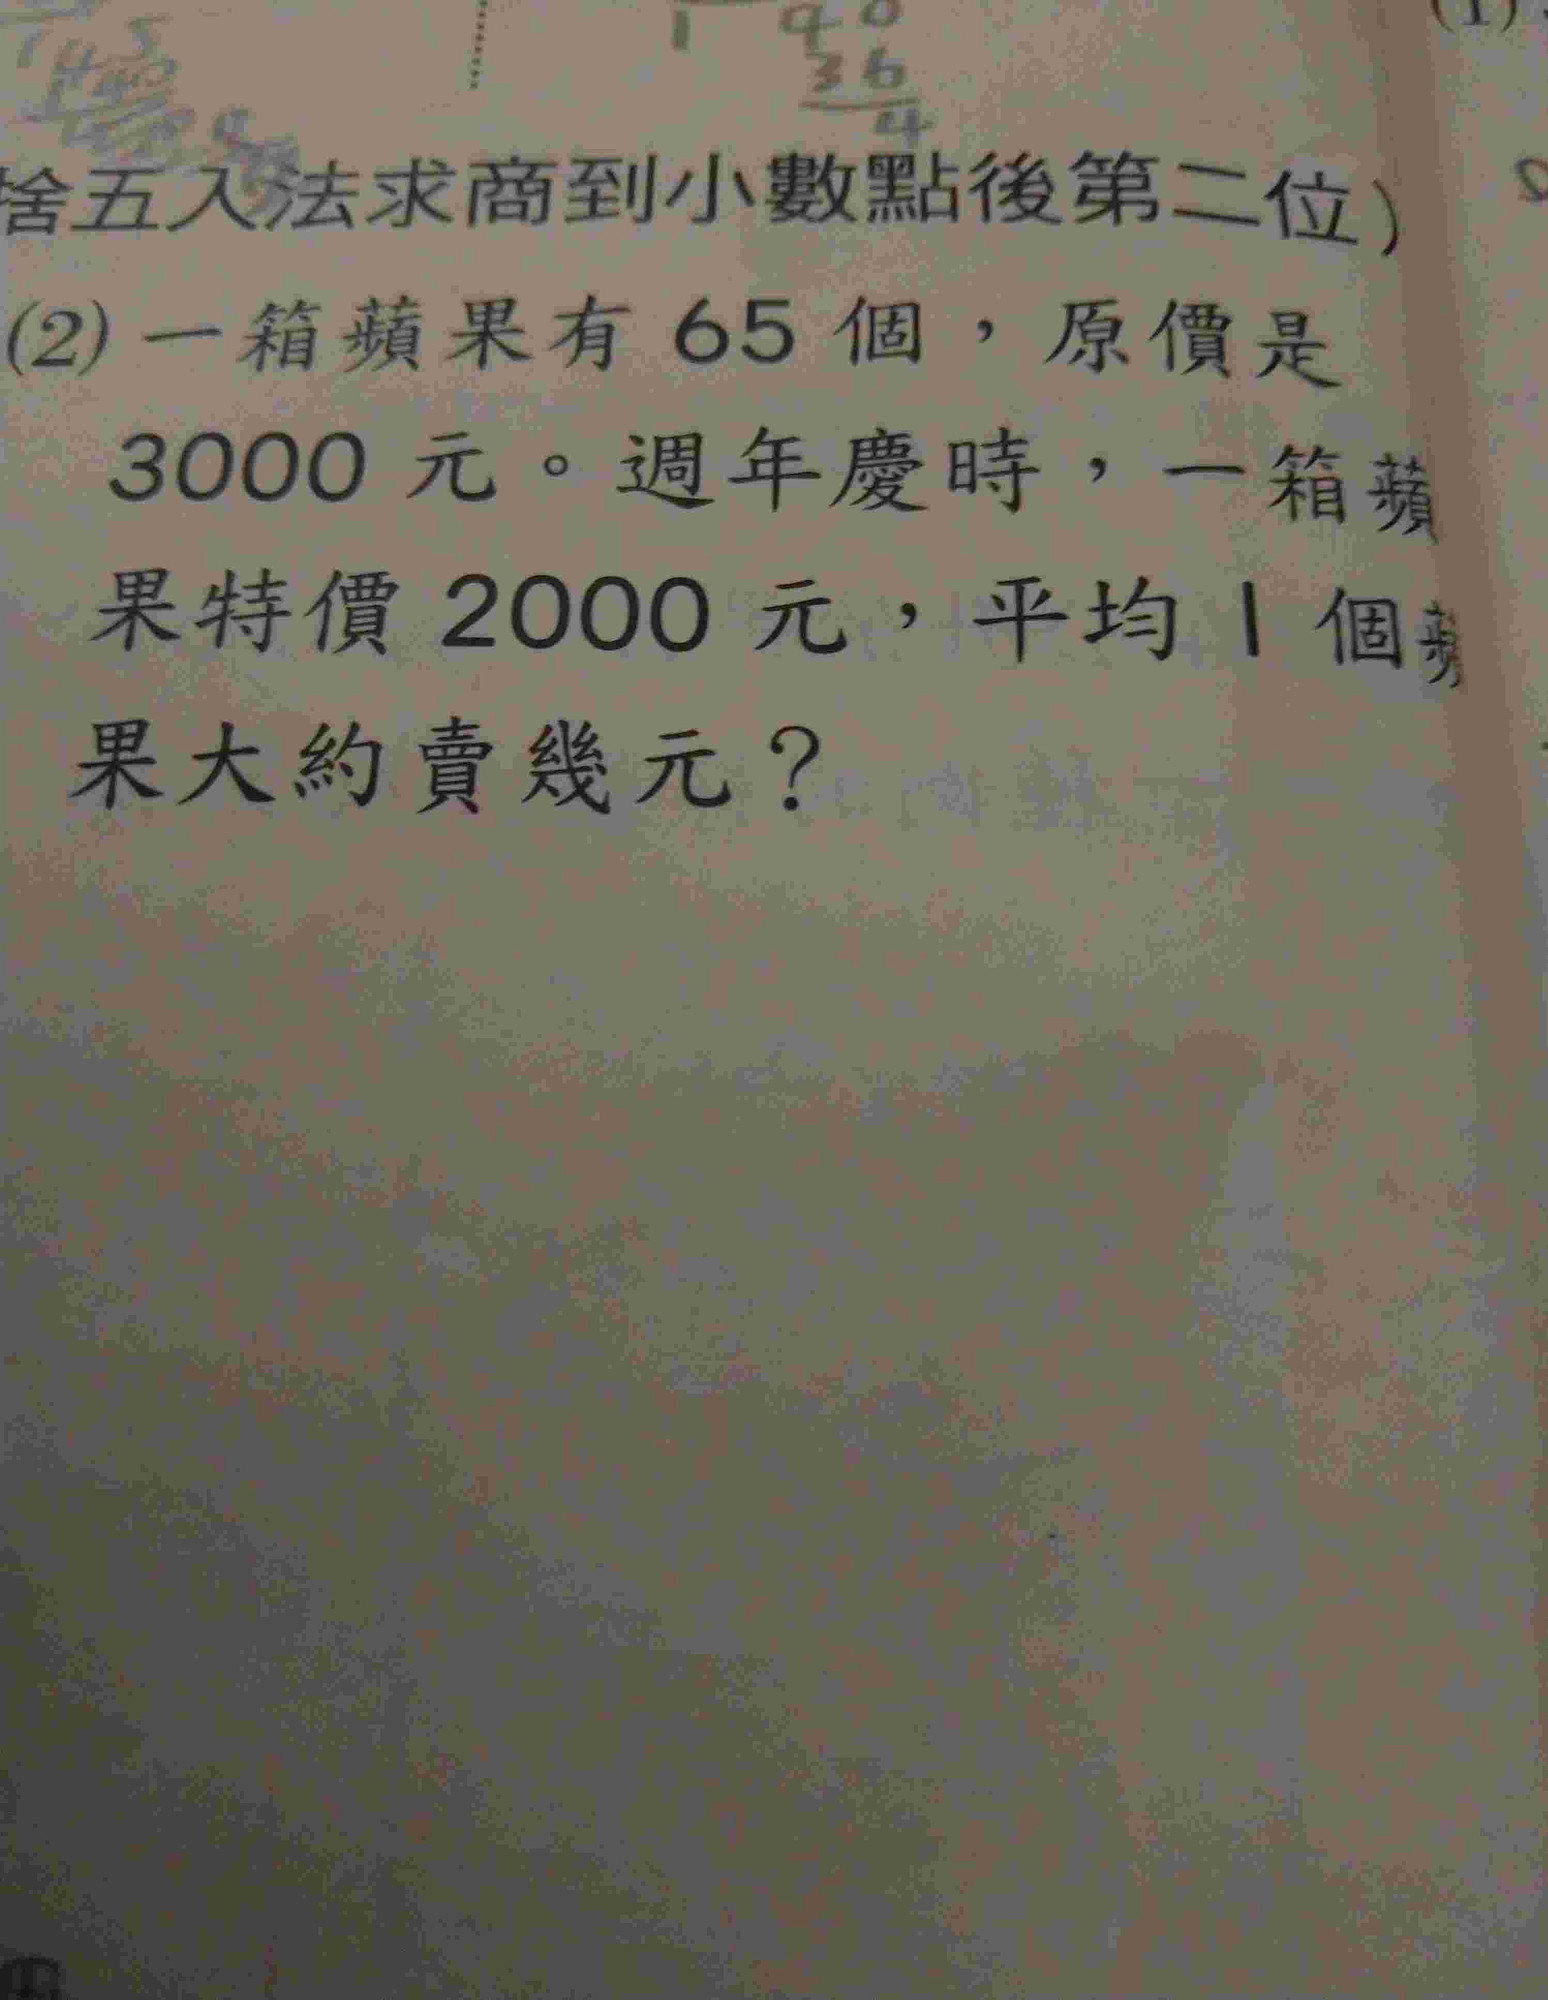 (1)
1 90
36
4
捨五入法求商到小數點後第二位)
(2) 一箱蘋果有 65 個，原價是
3000 元。週年慶時，一箱蘋
果特價 2000 元，平均 1 個蘋
果大約賣幾元？